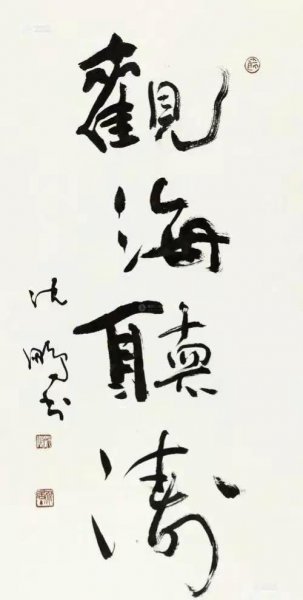 觀海聽濤
沈鵬書